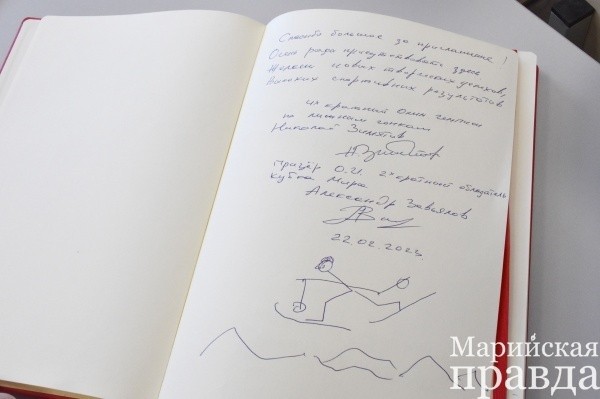 Спасибо большое за приглашение!
Очень рады присутствовать здесь
Желаем новых творческих успехов,
Высоких спортивных результатов
4х кратный Олим. чемпион
по лыжным гонкам
Николай Зимятов
призёр О.И. 2х кратный обладатель
Кубка Мира
Александр Завьялов
22.02.2023
Марийская
правда